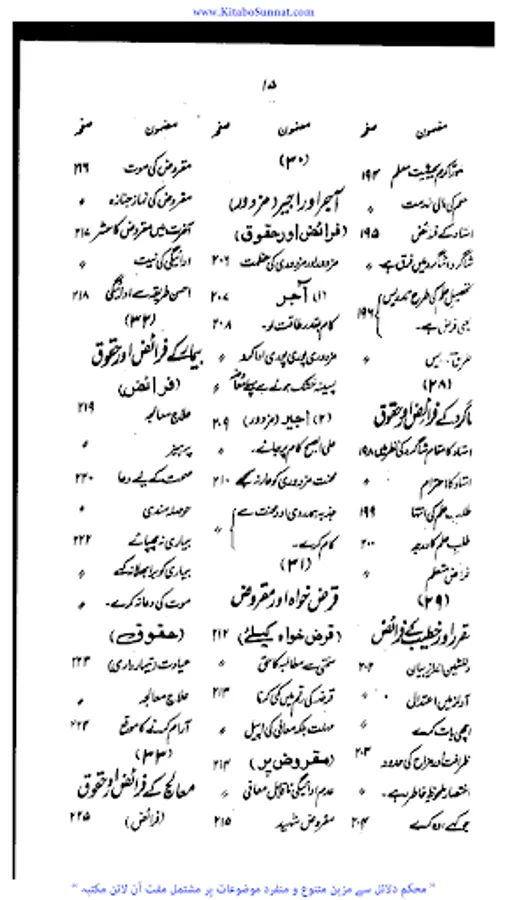 www.KitaboSunnat.com
۱۵
مضمون صفحہ
معلم کی مالی خدمت
استاد کے فرائض ۱۹۵
شاگرد شاگرد میں فرق ہے
تحصیل علم کی طرح تدریس
بھی فرض ہے۔ ۱۹۶
(۲۸)
شاگرد کے فرائض اور حقوق
استاد کا مقام شاگرد کی نظر میں ۱۹۸
استاد کا احترام
طلب علم کی انتہا ۱۹۹
طلب علم کا درجہ ۲۰۰
فرائض متعلم
(۲۹)
مقرر اور خطیب کے فرائض
دلنشین انداز بیان ۲۰۲
آواز میں اعتدال
اچھی بات کرے
ظرافت اور مزاح کی حدود ۲۰۳
اختصار ملحوظ خاطر رہے۔
جو کہے وہ کرے ۲۰۴
مضمون صفحہ
(۳۰)
آجر اور اجیر (مزدور)
(فرائض اور حقوق)
مزدور اور مزدوری کی عظمت ۲۰۶
(۱) آجر ۲۰۷
کام بقدر طاقت لو۔ ۲۰۸
مزدوری پوری پوری ادا کرو
پسینہ خشک ہونے سے پہلے
(۲) اجیر (مزدور) ۲۰۹
علی الصبح کام پر جائے۔
محنت مزدوری کو عار نہ سمجھے ۲۱۰
جذبہ ہمدردی اور محنت سے
کام کرے۔
(۳۱)
قرض خواہ اور مقروض
(قرض خواہ کیلئے) ۲۱۲
سختی سے مطالبہ کا حق
قرضہ کی رقم میں کمی کرنا ۲۱۳
مہلت بلکہ معافی کی اپیل
(مقروض پر) ۲۱۴
عدم ادائیگی ناقابل معافی
مقروض شہید ۲۱۵
مضمون صفحہ
مقروض کی موت ۲۱۶
مقروض کی نماز جنازہ
آخرت میں مقروض کا حشر ۲۱۷
ادائیگی کی نیت
احسن طریقے سے ادائیگی ۲۱۸
(۳۲)
بیمار کے فرائض اور حقوق
(فرائض)
علاج معالجہ ۲۱۹
پرہیز
صحت کے لیے دعا ۲۲۰
حوصلہ مندی
بیماری نہ چھپائے ۲۲۲
بیماری کو برا بھلا نہ کہے
موت کی دعا نہ کرے۔
(حقوق)
عیادت (تیمارداری) ۲۲۳
علاج معالجہ
آرام کرنے کا موقع ۲۲۴
(۳۳)
معالج کے فرائض اور حقوق
(فرائض) ۲۲۵
"محکم دلائل سے مزین متنوع و منفرد موضوعات پر مشتمل مفت آن لائن مکتبہ"